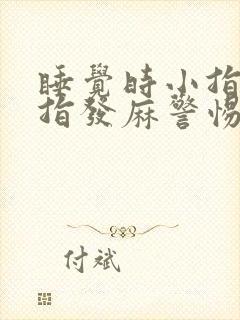 睡覺時小指
指發麻警惕
付斌